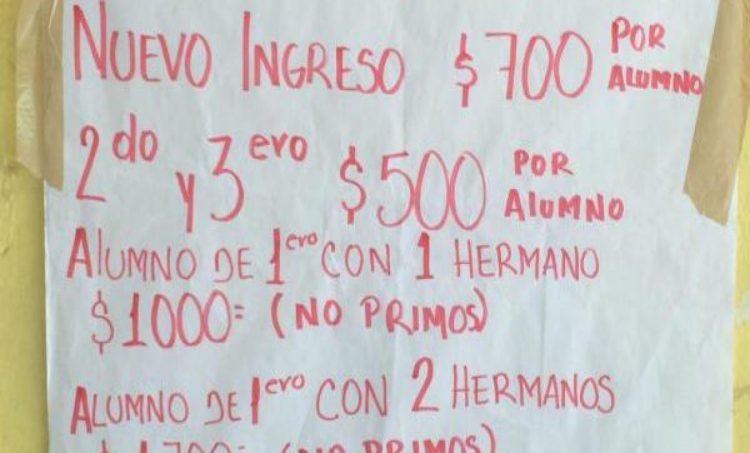 NUEVO INGRESO $700 POR ALUMNO
2do y 3ero $500 POR ALUMNO
ALUMNO DE 1ero CON 1 HERMANO
$1000= (NO PRIMOS)
ALUMNO DE 1ero CON 2 HERMANOS
(NO PRIMOS)